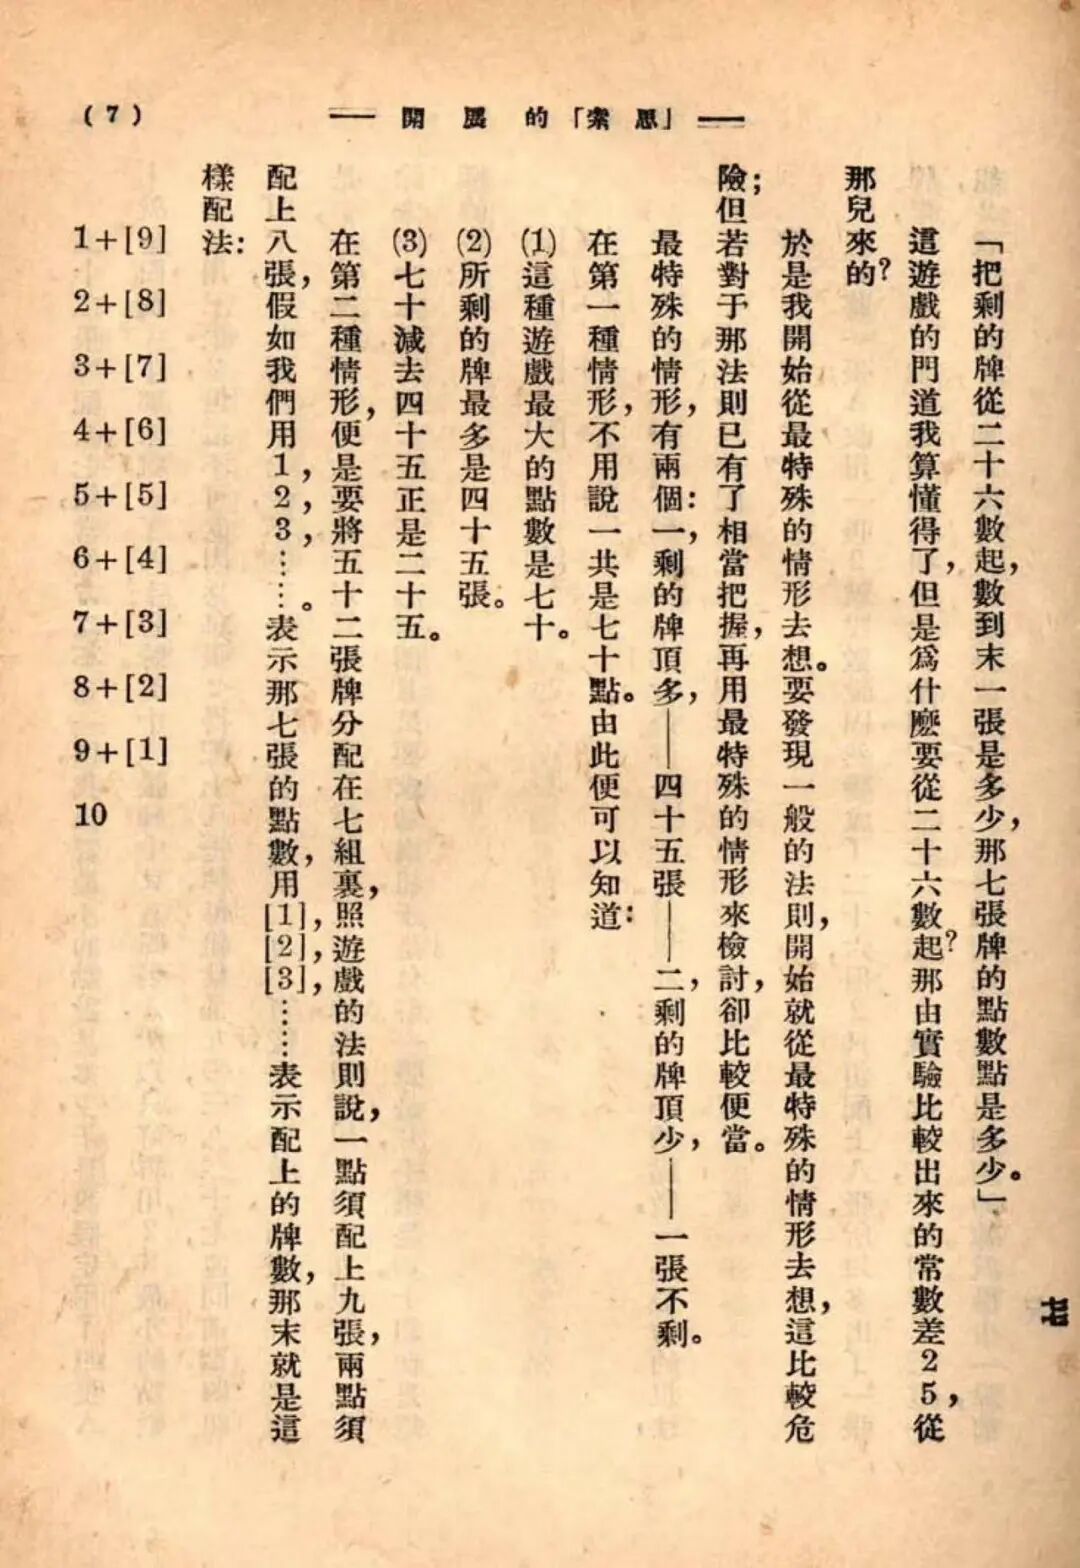 (7)
——「思索」的展開——
「把剩的牌從二十六數起，數到末一張是多少，那七張牌的點數點是多少。」
這遊戲的門道我算懂得了，但是爲什麼要從二十六數起？那由實驗比較出來的常數差25，從
那兒來的？
於是我開始從最特殊的情形去想。要發現一般的法則，開始就從最特殊的情形去想，這比較危
險；但若對于那法則已有了相當把握，再用最特殊的情形來檢討，卻比較便當。
最特殊的情形，有兩個：一，剩的牌頂多，——四十五張——二，剩的牌頂少，——一張不剩。
在第一種情形，不用說一共是七十點。由此便可以知道：
(1)這種遊戲最大的點數是七十。
(2)所剩的牌最多是四十五張。
(3)七十減去四十五正是二十五。
在第二種情形，便是要將五十二張牌分配在七組裏，照遊戲的法則說，一點須配上九張，兩點須
配上八張，假如我們用1，2，3，……。表示那七張的點數，用[1]，[2]，[3]，……表示配上的牌數，那末就是這
樣配法：
1+[9]
2+[8]
3+[7]
4+[6]
5+[5]
6+[4]
7+[3]
8+[2]
9+[1]
10